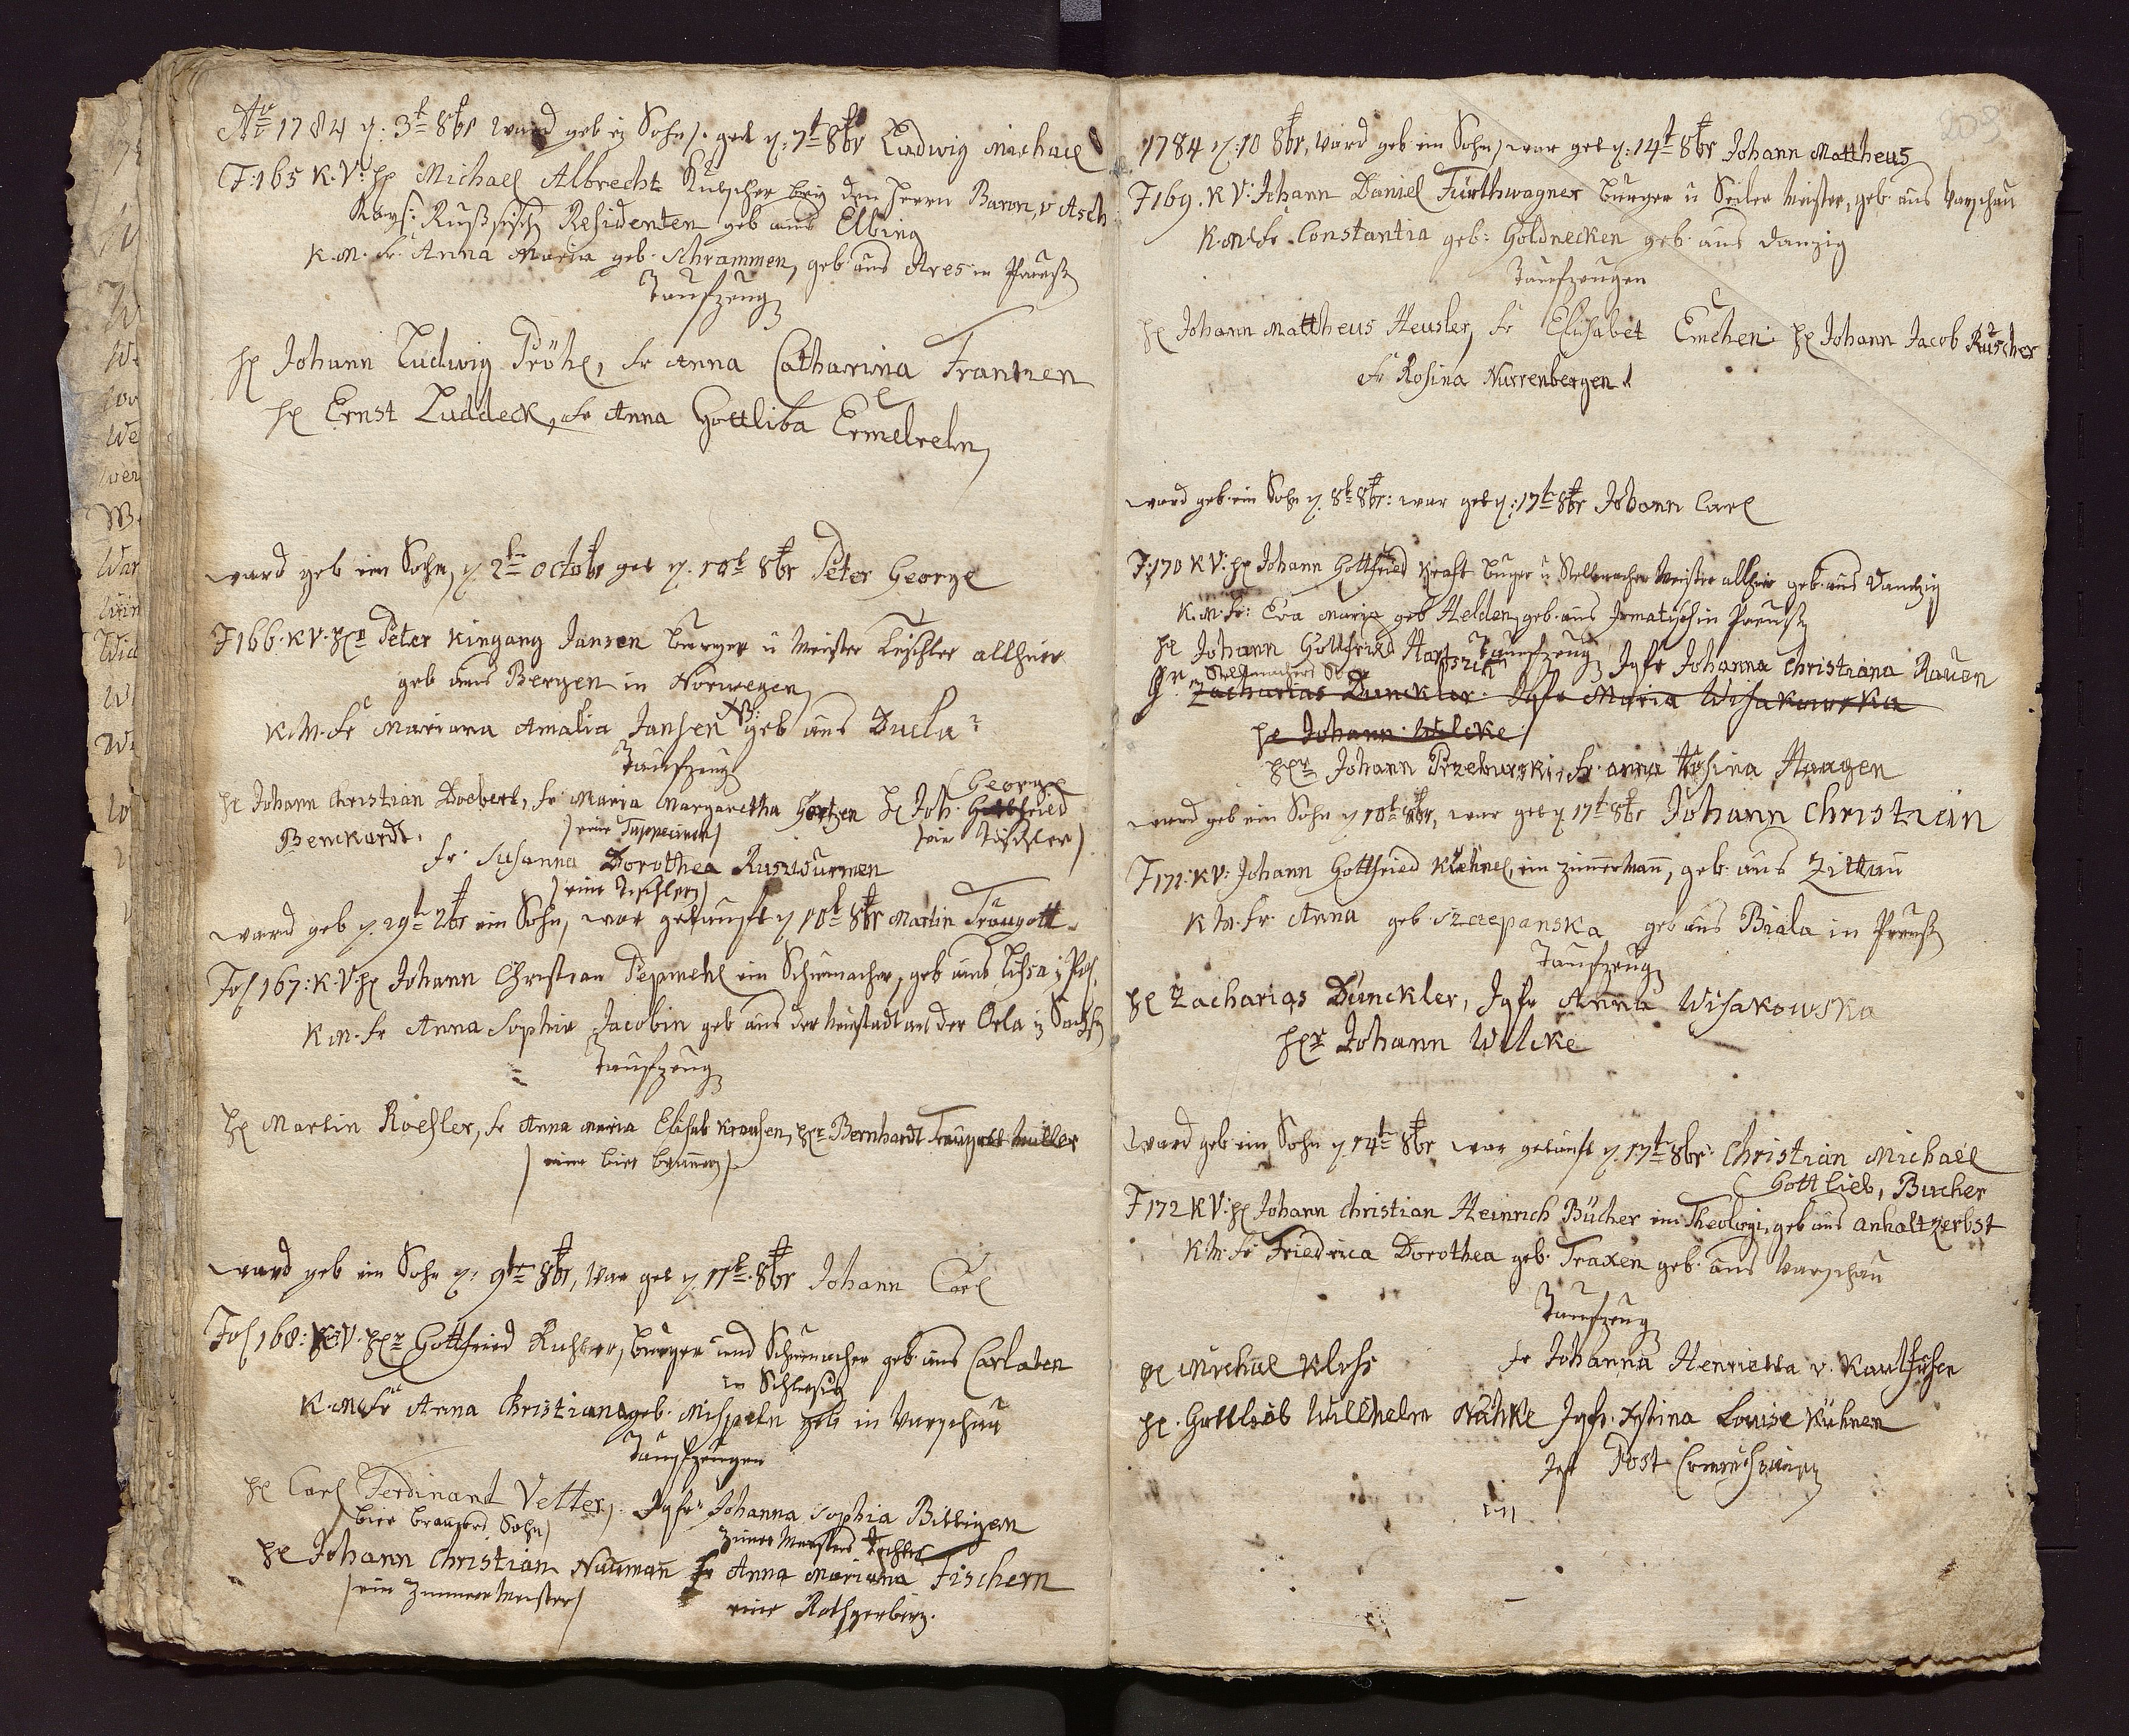 Ao 1784 d. 3t 8br ward geb ein Sohn get d. 7t 8br Ludwig Michael
F:165 K.V: He Michael Albrecht Kutscher bey den Herrn Baron v Asch
Kays: Russisch Residenten geb aus Elbing
K.M. Fr. Anna Maria geb. Schrammen, geb aus Ares in Preuss
Taufzeug
He Johann Ludwig Pröhl, Fr Anna Catharina Frantzen
He Ernst Luddeck, Fr Anna Gottliba
ward geb ein Sohn, d. 2t octobr get d. 10t 8br Peter George
F166. KV. Her Peter Kingang Jansen Burger u Meister Tischler allhier
geb aus Bergen in Norwegen
K.M. Fr Mariana Amalia Jansen geb aus Ducla
Taufzeug
George
He Johann Christian Doebert, Fr Maria Margaretha He Joh. Gottfried
Benckardt. ein Tischler
Fr. Susanna Dorothea Ruszwurmen
eine Tischlerin
ward geb d. 29t ein Sohn, war getauft d 10t 8br Martin Traugott
Fol 167: K.V He Johann Christian ein Schumacher, geb aus Lissa
K.M. Fr Anna Sophia Jacobin geb aus der Neustadt an der Orla
Taufzeug
He Martin Roesler, Fr Anna Maria Elisab Krausen, Her Bernhardt Traugott Muller
ward geb ein Sohn d. 9te 8br, war get d 11t. 8br Johann Carl
Fol 168: K.V. Her Gottfried Burger und Schumacher geb aus Carlaten
in Schlesig
K.M Fr Anna Christiana geb. geb in Varschau
Taufzeugen
He Carl Ferdinant Vetter, Jgfr Johanna Sophia Billigen
bier brauers Sohn
Zimer Meisters Tochter
He Johann Christian Nauman Fr Anna Mariana Fischern
ein Zimmer Meister
eine Rothgerberin.
1784 d. 10 8br, ward geb ein Sohn, war get d. 14t 8br Johann Mattheus
F169. K V: Johann Daniel Furthwagner Burger u Seiler Meister, geb aus Varschau
K.M Fr Constantia geb: Goldnecken geb aus Danzig
Taufzeugen
He Johann Mattheus Heusler, Fr Elisabet Emchen He Johann Jacob Ruscher
Fr Rosina Nurrenbergen
ward geb ein Sohn d. 8t 8br: war get d: 17t 8br Johann Carl
F:170 KV: He Johann Gottfried Kraft Burger u Stellmacher Meister allhier geb aus Dantzig
K.M. Fr: Eva Maria geb Helden, geb aus in Preuss
He Johann Gottfried Taufzeug Jgfr Johanna Christiana Rauen
Zacharias Dunckler Jgfr Maria Wisakowska
He Johann Wilcke
Her Johann Przeburski, Fr. Anna Rosina Haagen
ward geb ein Sohn d 10t 8br, war get d 17t 8br Johann Christian
F171: KV: Johann Gottfried Kuhnel, ein Zimerman, geb. aus Zittau
K M. Fr. Anna geb. Szczepanska geb aus Biala in Preuss
Taufzeug
He Zacharias Dunckler, Jgfr Anna Wisakowska
Her Johann Wilcke
ward geb ein Sohn d 14t 8br war getauft d. 17t 8br Christian Michael
Gottlieb, Bucher
F172 KV: He Johann Christian Heinrich Bücher ein Theologi, geb aus Anhalt Zerbst
K.M. Fr Friedrica Dorothea geb. Traxen geb. aus Varschau
Taufzeug
He Michael Kloss Fr Johanna Henrietta v. Kaulfuhsen
He. Gottlieb Willhelm Nähke Jgfr. Justina Louise Kühnen